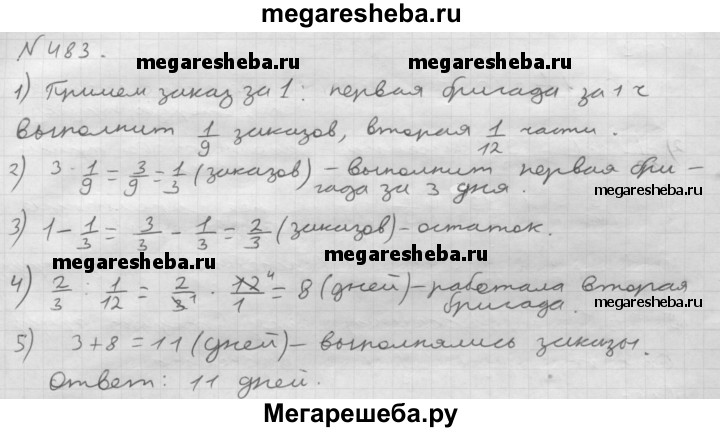 megaresheba.ru
N 483.
megaresheba.ru megaresheba.ru
1) Примем заказ за 1: первая бригада за 1 ч
выполнит 1/9 заказов, вторая 1/12 части.
2) 3 · 1/9 = 3/9 = 1/3 (заказов) – выполнит первая бри-
гада за 3 дня.
megaresheba.ru
3) 1 - 1/3 = 3/3 - 1/3 = 2/3 (заказов) – остаток.
megaresheba.ru megaresheba.ru
4) 2/3 : 1/12 = 2/3 1 · 12 4/1 = 8 (дней) – работала вторая
бригада.
megaresheba.ru
5) 3+8 = 11 (дней) – выполнялись заказы.
Ответ: 11 дней.
Мегарешеба.ру